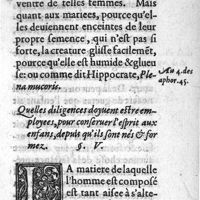 ventre de telles femmes. Mais
quant aux mariees, pourcequ'el-
les deuiennent enceintes de leur
propre semence, qui n'est pas si
forte, la creature glisse facilemẽt,
pourcequ'elle est humide & glueu
se: ou comme dit Hippocrate, Ple-
na mucoris.
Au 4. des
aphor. 45.
Quelles diligences doyuent estre em-
ployees, pour conseruer l'esprit aux
enfans, depuis qu'ils sont nés & for
mez. §. V.
LA matiere de laquelle
l'homme est composé
est tant aisee à s'alte-